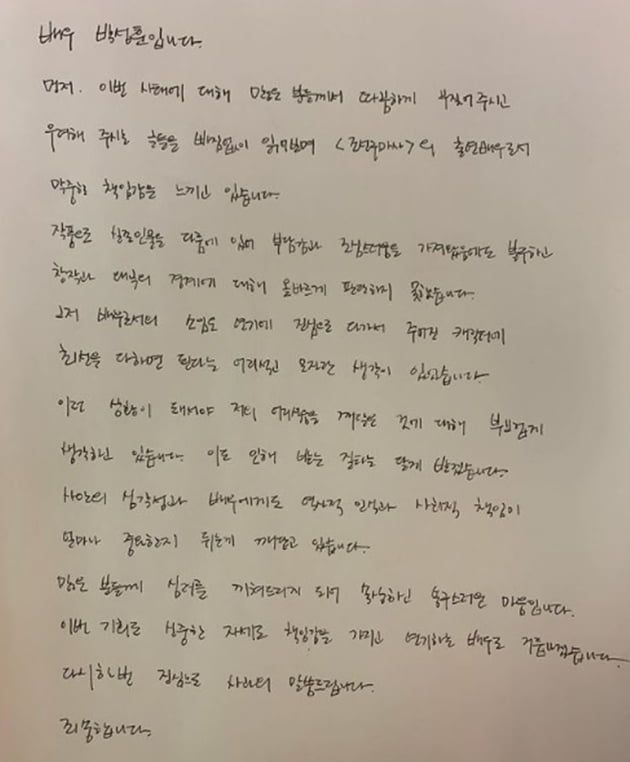 배우 박성훈입니다.
먼저. 이번 사태에 대해 많은 분들께서 따끔하게 꾸짖어 주시고
우려해 주시는 글들을 빠짐없이 읽어보며 <조선구마사>의 출연배우로서
막중한 책임감을 느끼고 있습니다.
작품으로 실존인물을 다룸에 있어 부담감과 조심스러움을 가져왔음에도 불구하고
창작과 왜곡의 경계에 대해 올바르게 판단하지 못했습니다.
그저 배우로서의 소임도 연기에 진심으로 다가서 주어진 캐릭터에
최선을 다하면 된다는 어리석고 모자란 생각이 있었습니다.
이런 상황이 돼서야 저의 어리석음을 깨달은 것에 대해 부끄럽게
생각하고 있습니다. 이로 인해 받는 질타는 달게 받겠습니다.
사안의 심각성과 배우에게도 역사적 인식과 사회적 책임이
얼마나 중요한지 뒤늦게 깨닫고 있습니다.
많은 분들께 심려를 끼쳐드리게 되어 죄송하고 송구스러운 마음입니다.
이번 기회로 신중한 자세로 책임감을 가지고 연기하는 배우로 거듭나겠습니다.
다시 한번 진심으로 사과의 말씀드립니다.
죄송합니다.